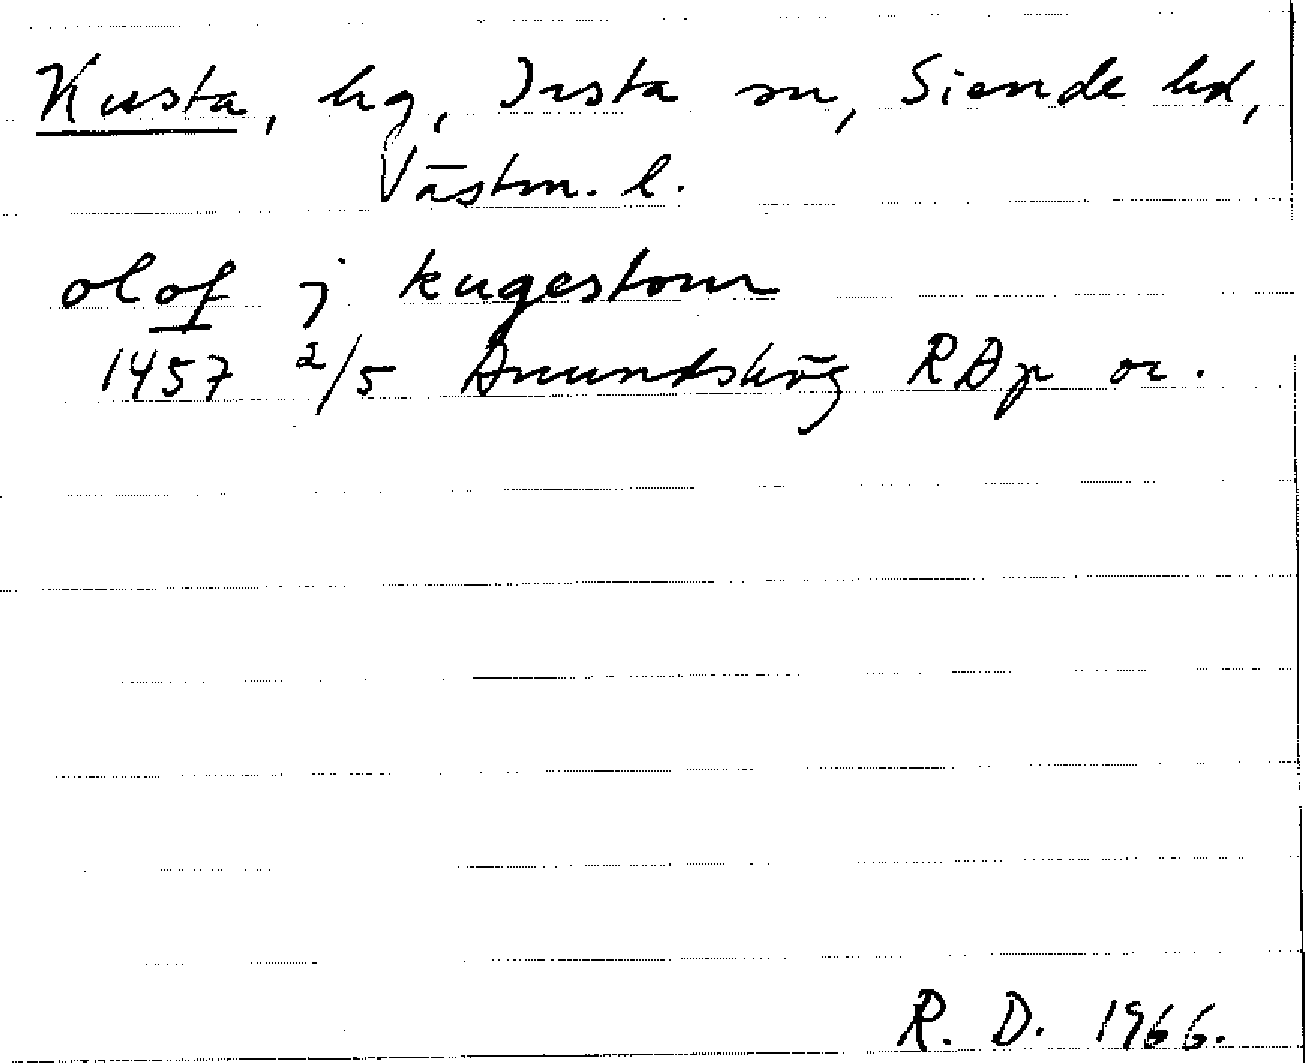 Kusta, hg, Irsta sn, Siende hd,
Västm. l.
olof j kugestom
1457 2/5 Amundshög RAp or.
R. D. 1966.